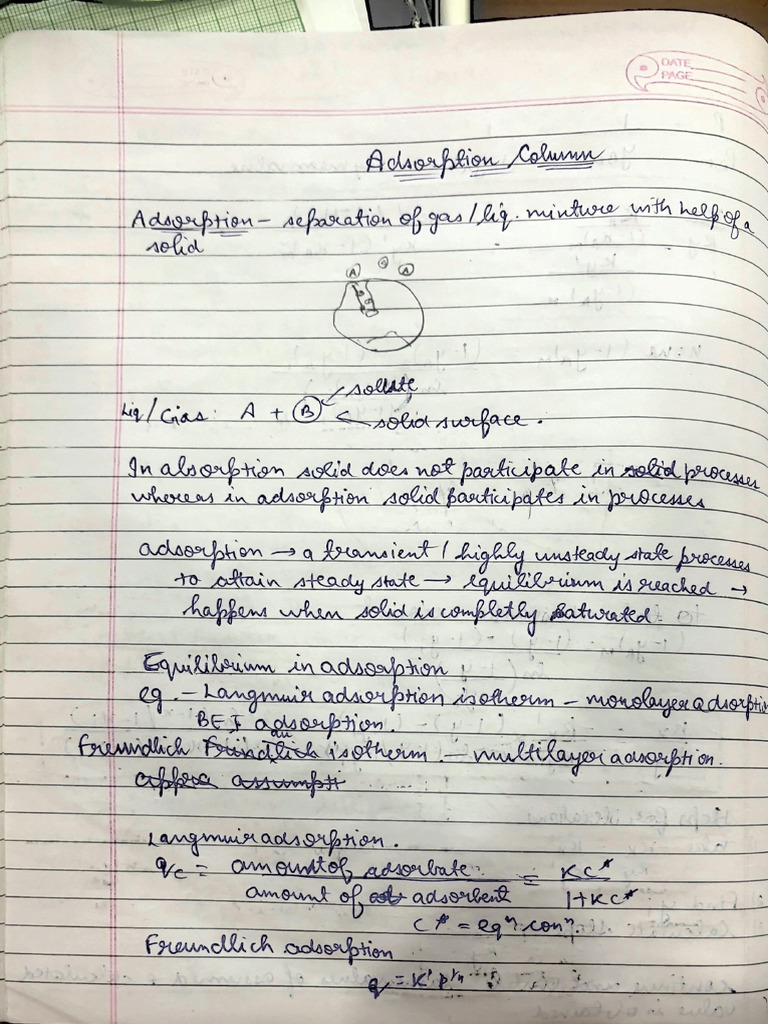 DATE
PAGE
Adsorption Column
Adsorption - separation of gas/liq. mixture with help of a
solid
A A
Liq/Gas: A + B solute
solid surface.
In absorption solid does not participate in solid processes
whereas in adsorption solid participates in processes
adsorption → a transient / highly unsteady state processes
to attain steady state → equilibrium is reached →
happens when solid is completly saturated.
Equilibrium in adsorption
eg. - Langmuir adsorption isotherm - monolayer adsorption
BET adsorption.
Freundlich isotherm - multilayer adsorption.
Langmuir adsorption.
qc = amount of adsorbate = KC*
amount of adsorbent 1+KC*
C* = eqⁿ conⁿ
Freundlich adsorption
q = K' p^1/n